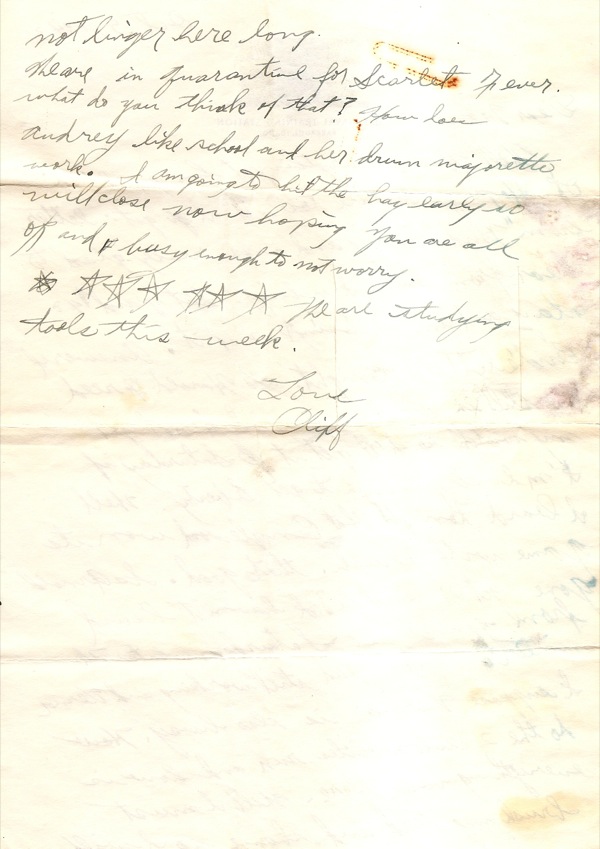 not linger here long.
We are in quarantine for Scarlet Fever.
what do you think of that? How does
Audrey like school and her drum majorette
work. I am going to hit the hay early so
will close now hoping you are all
OK and busy enough to not worry.
We are studying
tools this week.
Love
Cliff